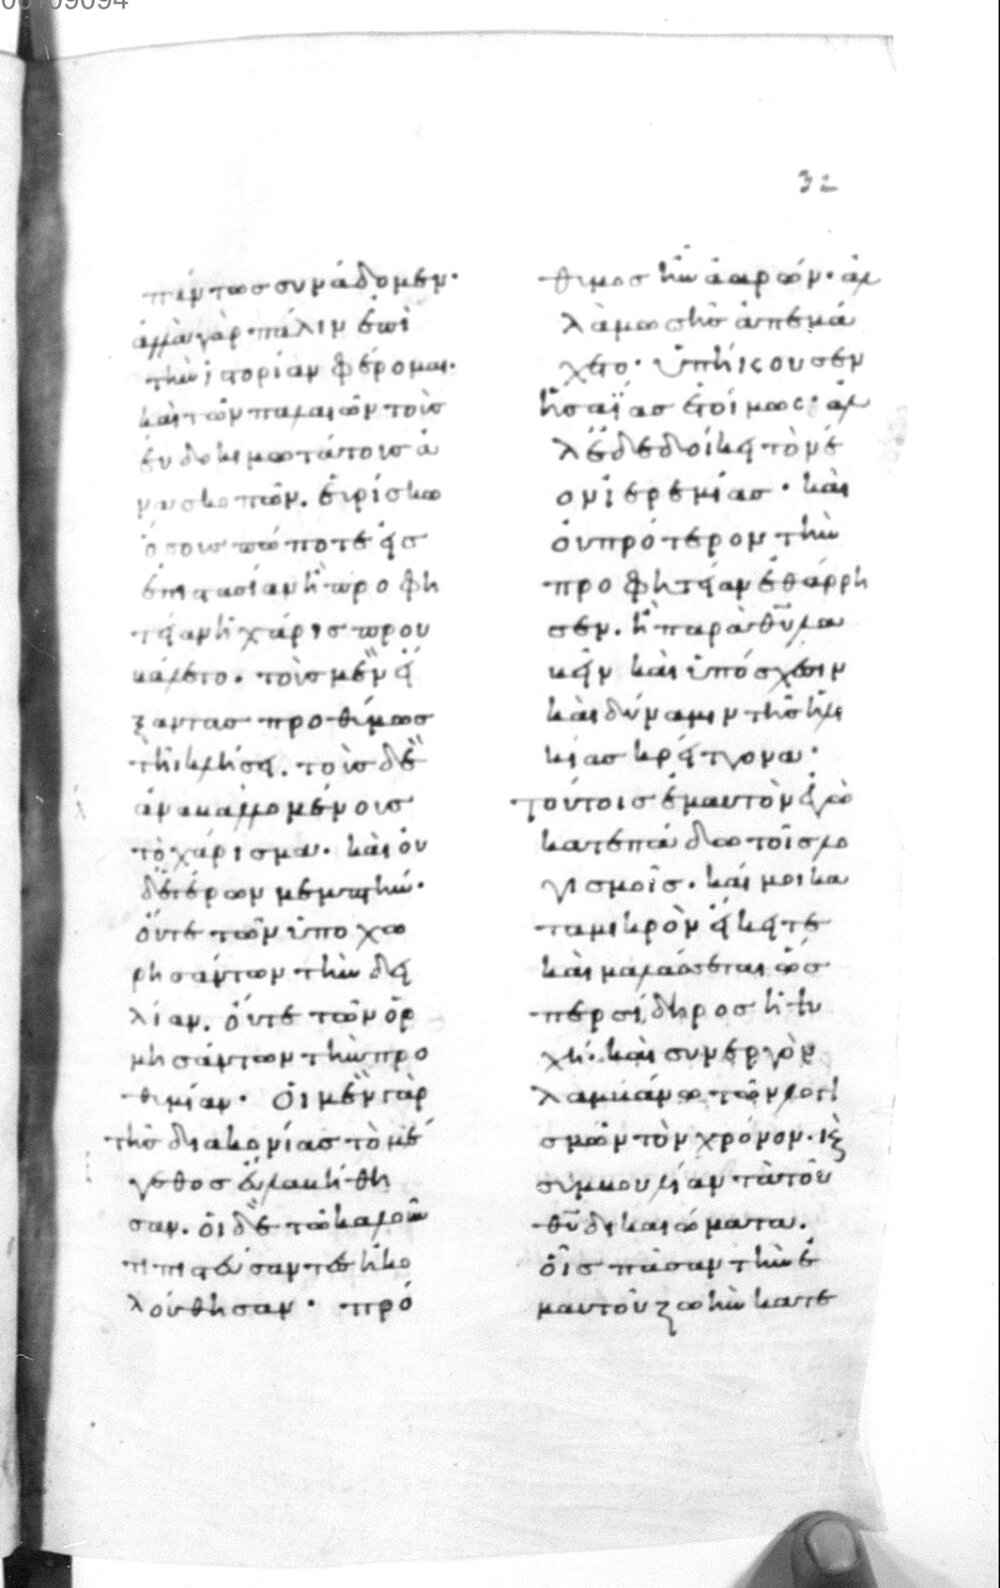 00009094
32
πάντως συνάδομεν·
ἀλλὰ γὰρ πάλιν ἐπὶ
τὴν ἱστορίαν φέρομαι·
καὶ τῶν παλαιῶν τοῖς
εὐδοκιμωτάτοις ἀ
νασκοπῶν. εὑρίσκω
ὅσους πώποτε εἰς
ἐπιστασίαν ἢ προφη
τείαν ἡ χάρις πρου
κάλετο. τοὺς μὲν εἴ
ξαντας προθύμως
τῆι κλήσει. τοὺς δὲ
ἀνακαλλομένους
τὸ χάρισμα. καὶ οὐ
δετέρων μεμπτὴν·
οὔτε τῶν ὑποχω
ρησάντων τὴν δει
λίαν. οὔτε τῶν ὁρ
μησάντων τὴν προ
θυμίαν· Οἱ μὲν γὰρ
τῆς διακονίας τὸ μέ
γεθος εὐλαβήθη
σαν. οἱ δὲ τῶ καλοῦν
τι πιστεύσαντες ἠκο
λούθησαν· πρό
θυμος ἦν ἀαρών· ἀλ
λὰ μωσῆς ἀντεμά
χετο· ὑπήκουσεν
ἡσαΐας ἑτοίμως· ἀλ
λὲδεδοίκει τὸ νέ
ον ἱερεμίας· καὶ
οὐ πρότερον τὴν
προφητείαν ἐθάρρη
σεν. ἢ παρὰ θῦ λα
βεῖν καὶ ὑπόσχεσιν
καὶ δύναμιν τῆς ἡλι
κίας κρείττονα·
τούτοις ἐμαυτὸν ἐγὼ
κατεπάδω τοῖς λο
γισμοῖς. καί μοι κα
ταμικρὸν εἴκει τε
καὶ μαλάσσεται ὥσ
περ σίδηρος ἡ ψυ
χή· καὶ συνεργὸν
λαμβάνω τῶν λογι
σμῶν τὸν χρόνον· κὲ
συμβουλίαν τὰ τοῦ
θῦ δικαιώματα.
οἷς πᾶσαν τὴν ἐ
μαυτοῦ ζωὴν κατε